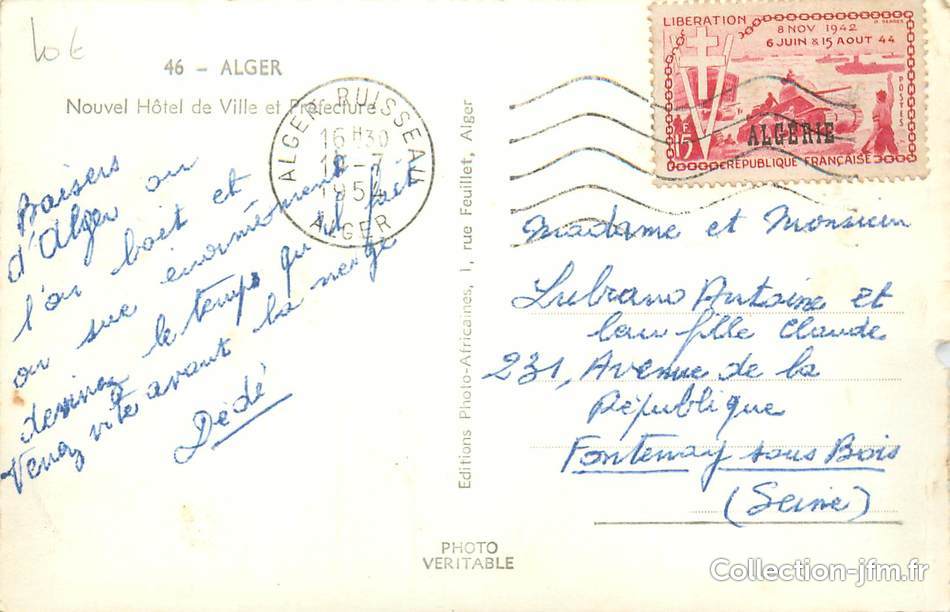 10 €
46 – ALGER
Nouvel Hôtel de Ville et Préfecture
Baisers
d'Alger ou
l'on boit et
on sue enormément
devinez le temps qu'il fait
Venez vite avant la neige
Dédé
ALGER RUISSEAU
16H30
-7
1954
ALGER
Editions Photo-Africaines, 1, rue Feuillet, Alger
PHOTO
VERITABLE
LIBERATION
8 NOV 1942
6 JUIN & 15 AOUT 44
POSTES
15F
ALGÉRIE
RÉPUBLIQUE FRANÇAISE
Madame et Monsieur
Lubrano Antoine et
leur fille Claude
231, Avenue de la
République
Fontenay sous Bois
(Seine)
Collection-jfm.fr